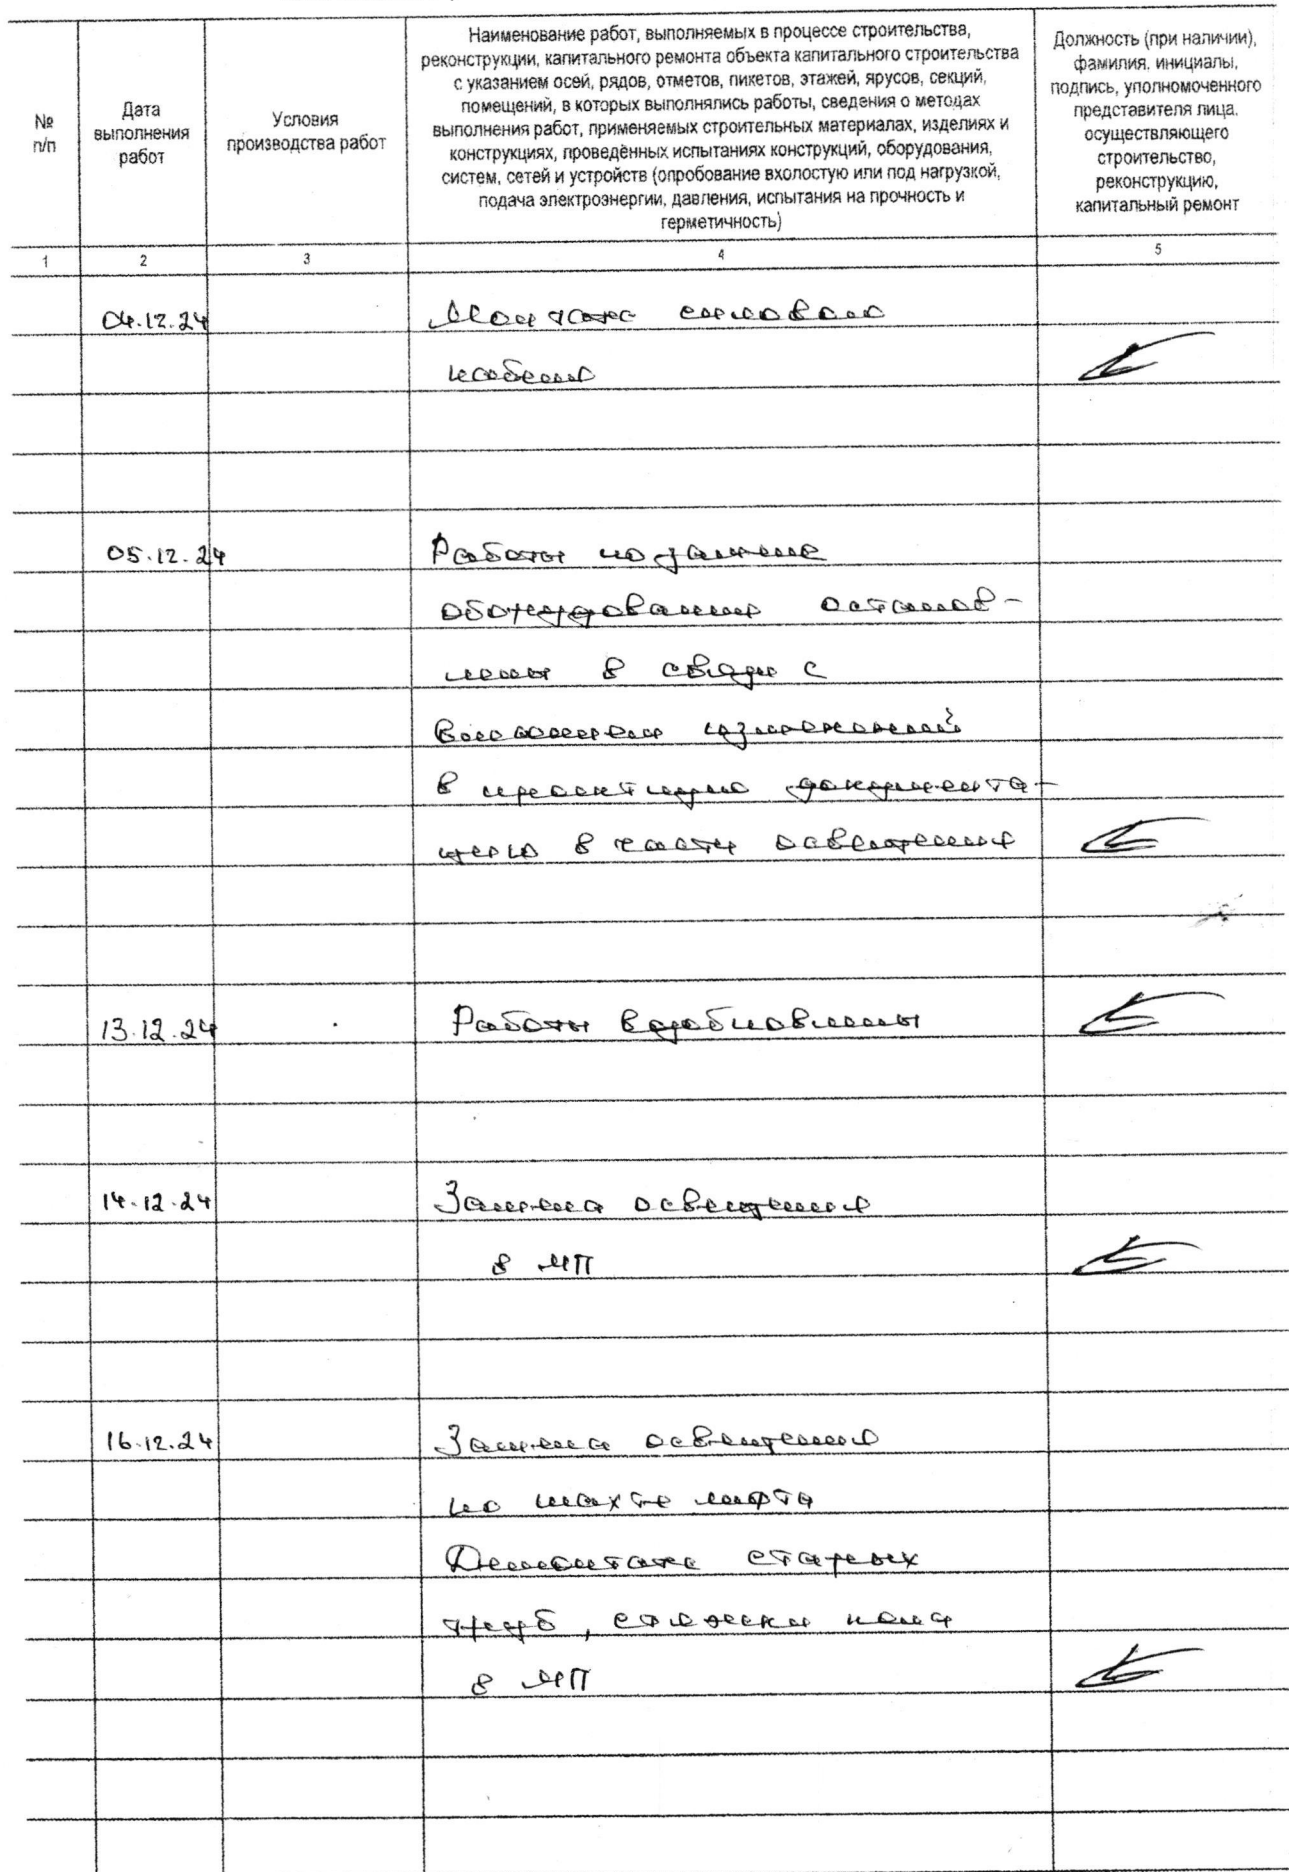 №
п/п
Дата
выполнения
работ
Условия
производства работ
Наименование работ, выполняемых в процессе строительства,
реконструкции, капитального ремонта объекта капитального строительства
с указанием осей, рядов, отметов, пикетов, этажей, ярусов, секций,
помещений, в которых выполнялись работы, сведения о методах
выполнения работ, применяемых строительных материалах, изделиях и
конструкциях, проведённых испытаниях конструкций, оборудования,
систем, сетей и устройств (опробование вхолостую или под нагрузкой,
подача электроэнергии, давления, испытания на прочность и
герметичность)
Должность (при наличии),
фамилия, инициалы,
подпись, уполномоченного
представителя лица,
осуществляющего
строительство,
реконструкцию,
капитальный ремонт
1 2 3 4 5
04.12.24 Монтаж силового
кабеля
05.12.24 Работы по замене
оборудования останов-
лены в связи с
внесением изменений
в проектную документа-
цию в части освещения
13.12.24 Работы возобновлены
14.12.24 Замена освещения
в МП
16.12.24 Замена освещения
по шахте лифта
Демонтаж старых
труб, стяжки пола
в МП